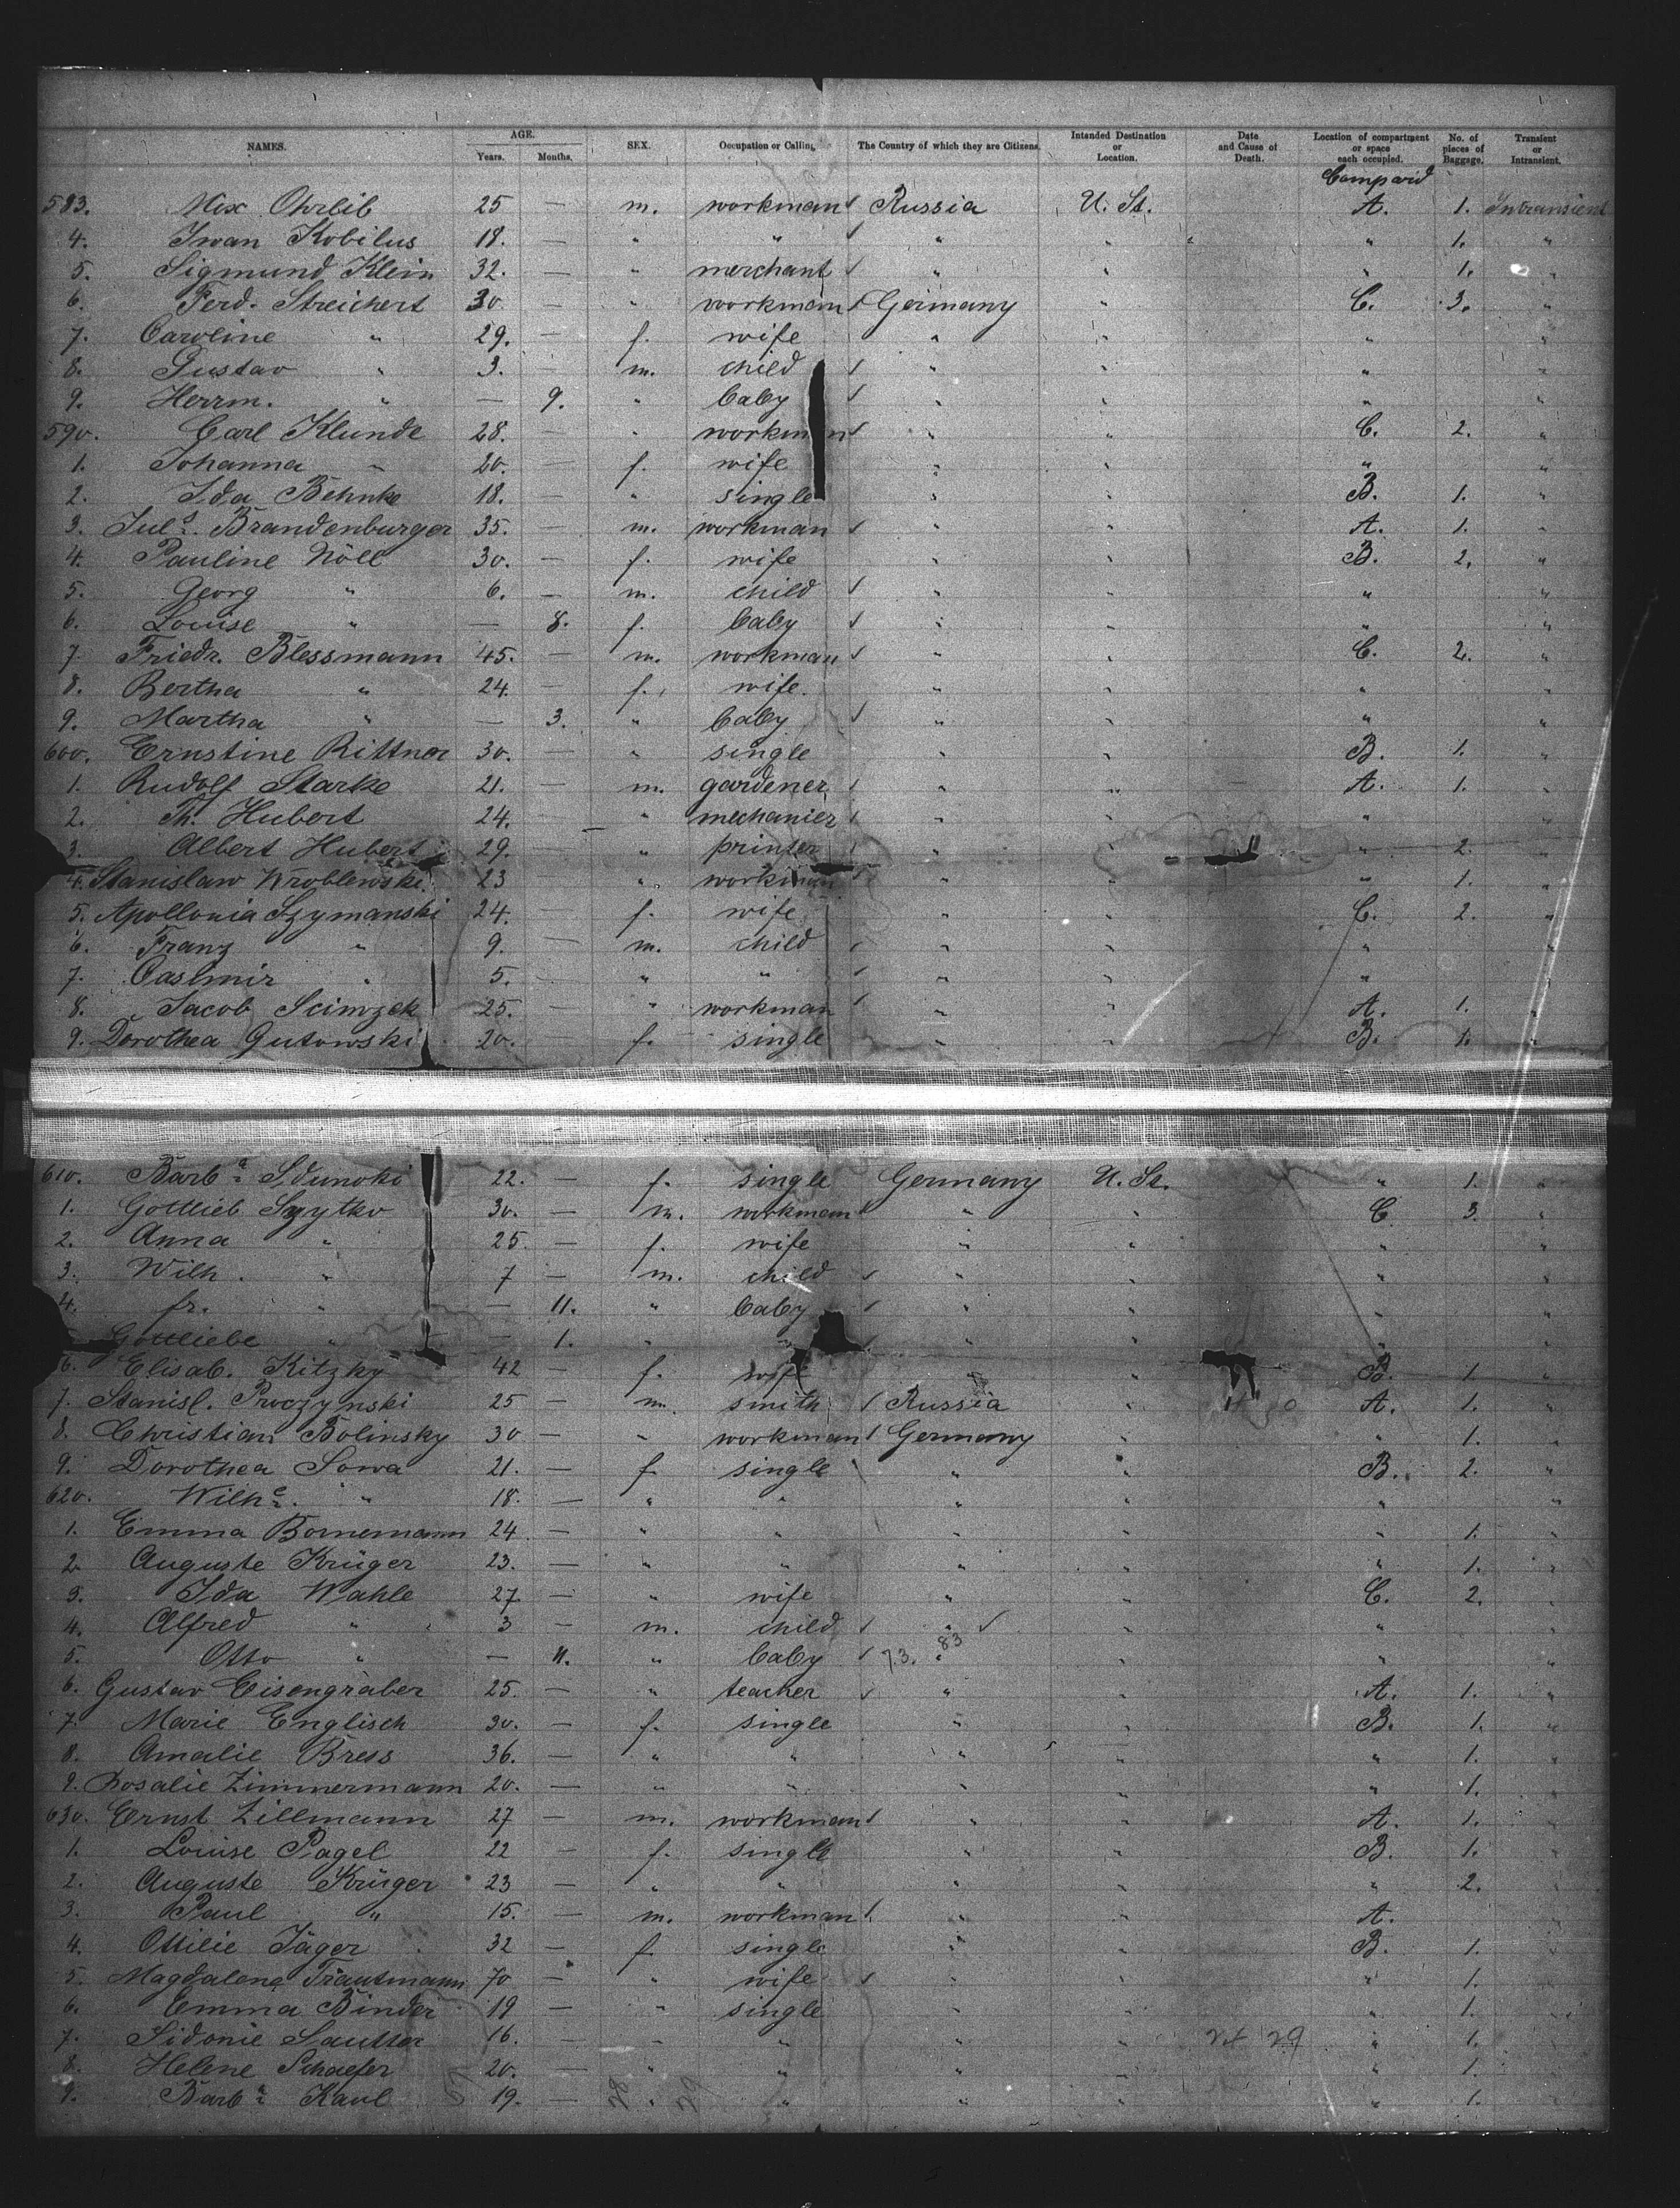 NAMES. AGE. Years. Months. SEX. Occupation or Calling. The Country of which they are Citizens. Intanded Destination or Location. Date and Cause of Death. Location of compartment or space each occupied. No. of pieces of Baggage. Transient or Intransient.
583. Max Ohrlib 25 — m. workman Russia U. St. A. 1. Intransient
4. Iwan Kobilus 18. — " " " " " 1. "
5. Sigmund Klein 32. — " merchant " " " 1. "
6. Ferd. Streichert 30 — " workman Germany " C. 3. "
7. Caroline " 29. — f. wife " " " "
8. Gustav " 3. — m. child " " " "
9. Herrm. " — 9. " baby " " " "
590. Carl Klunde 28. — " workman " " C. 2. "
1. Johanna " 20. — f. wife " " " "
2. Ida Behnke 18. — " single " " B. 1. "
3. Juls. Brandenburger 35. — m. workman " " A. 1. "
4. Pauline Nöll 30. — f. wife " " B. 2. "
5. Georg " 6. — m. child " " " "
6. Louise " — 8. f. baby " " " "
7. Friedr. Blessmann 45. — m. workman " " C. 2. "
8. Bertha " 24. — f. wife. " " " "
9. Martha " — 3. " baby " " " "
600. Ernstine Rittner 30. — " single " " B. 1. "
1. Rudolf Starke 21. — m. gardener " " A. 1. "
2. Th. Hubert 24. — " mechanier " " " "
3. Albert Hubert 29. — " printer " " " 2. "
4. Stanislaw Wroblewski 23 — " workman " " " 1. "
5. Apollonia Szymanski 24. — f. wife " " C. 2. "
6. Franz " 9. — m. child " " " "
7. Casimir " 5. — " " " " " "
8. Jacob 25. — " workman " " A. 1. "
9. Dorothea Gutowski 20. — f. single " " B. 1. "
610. Barba. 22. — f. single Germany U. St. " 1. "
1. Gottlieb 30. — m. workman " " C 3. "
2. Anna " 25. — f. wife " " " "
3. Wilh. " 7 — m. child " " " "
4. fr. " — 11. " baby " " " "
Gottliebe " — 1. " " " " " "
6. Elisab. Kitzky 42 — f. wife " " B. 1. "
7. Stanisl. Proczynski 25 — m. smith Russia " A. 1. "
8. Christian Bolinsky 30 — " workman Germany " " 1. "
9. Dorothea Sowa 21. — f. single " " B. 2. "
620. Wilhe. " 18. — " " " " " "
1. Emma Bornemann 24 — " " " " " 1. "
2. Auguste Krüger 23. — " " " " " 1. "
3. Ida Wahle 27. — " wife " " C. 2. "
4. Alfred " 3 — m. child " " " "
5. Otto " — 11. " baby 73. 83 " " " "
6. Gustav Eisengräber 25. — " teacher " " A. 1. "
7. Marie Englisch 30. — f. single " " B. 1. "
8. Amalie Bress 36. — " " " " " 1. "
9. Rosalie Zimmermann 20. — " " " " " 1. "
630. Ernst Zillmann 27 — m. workman " " A. 1. "
1. Louise Pagel 22 — f. single " " B. 1. "
2. Auguste Krüger 23 — " " " " " 2. "
3. Paul " 15. — m. workman " " A. "
4. Ottilie Jäger 32 — f. single " " B. 1. "
5. Magdalena Trautmann 70 — " wife " " " 1. "
6. Emma Binder 19 — " single " " " 1. "
7. Sidonie Sautter 16. — " " " " " 1. "
8. Helene Schaefer 20. — " " " " " 1. "
9. Barba. Kaul 19. — " " " " " 1. "